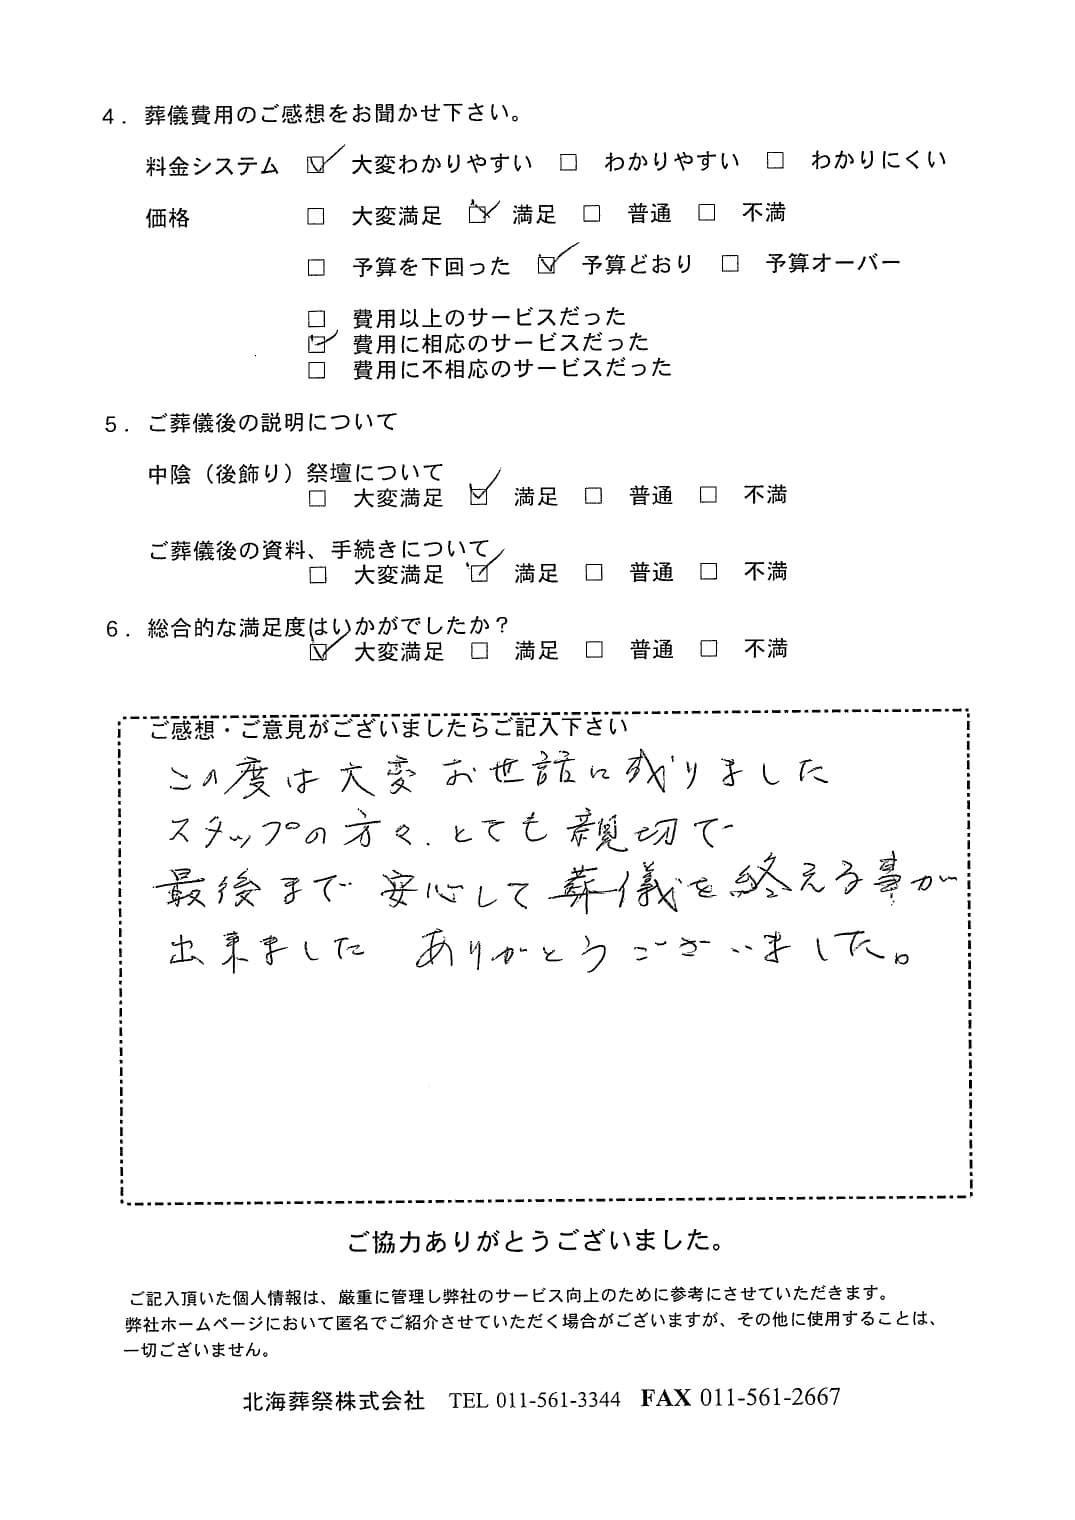 4．葬儀費用のご感想をお聞かせ下さい。
料金システム ☑ 大変わかりやすい □ わかりやすい □ わかりにくい
価格 □ 大変満足 ☑ 満足 □ 普通 □ 不満
□ 予算を下回った ☑ 予算どおり □ 予算オーバー
□ 費用以上のサービスだった
☑ 費用に相応のサービスだった
□ 費用に不相応のサービスだった
5．ご葬儀後の説明について
中陰（後飾り）祭壇について
□ 大変満足 ☑ 満足 □ 普通 □ 不満
ご葬儀後の資料、手続きについて
□ 大変満足 ☑ 満足 □ 普通 □ 不満
6．総合的な満足度はいかがでしたか？
☑ 大変満足 □ 満足 □ 普通 □ 不満
ご感想・ご意見がございましたらご記入下さい
この度は大変お世話に成りました
スタップの方々、とても親切で
最後まで安心して葬儀を終える事が
出来ました ありがとうございました。
ご協力ありがとうございました。
ご記入頂いた個人情報は、厳重に管理し弊社のサービス向上のために参考にさせていただきます。
弊社ホームページにおいて匿名でご紹介させていただく場合がございますが、その他に使用することは、
一切ございません。
北海葬祭株式会社 TEL 011-561-3344 FAX 011-561-2667